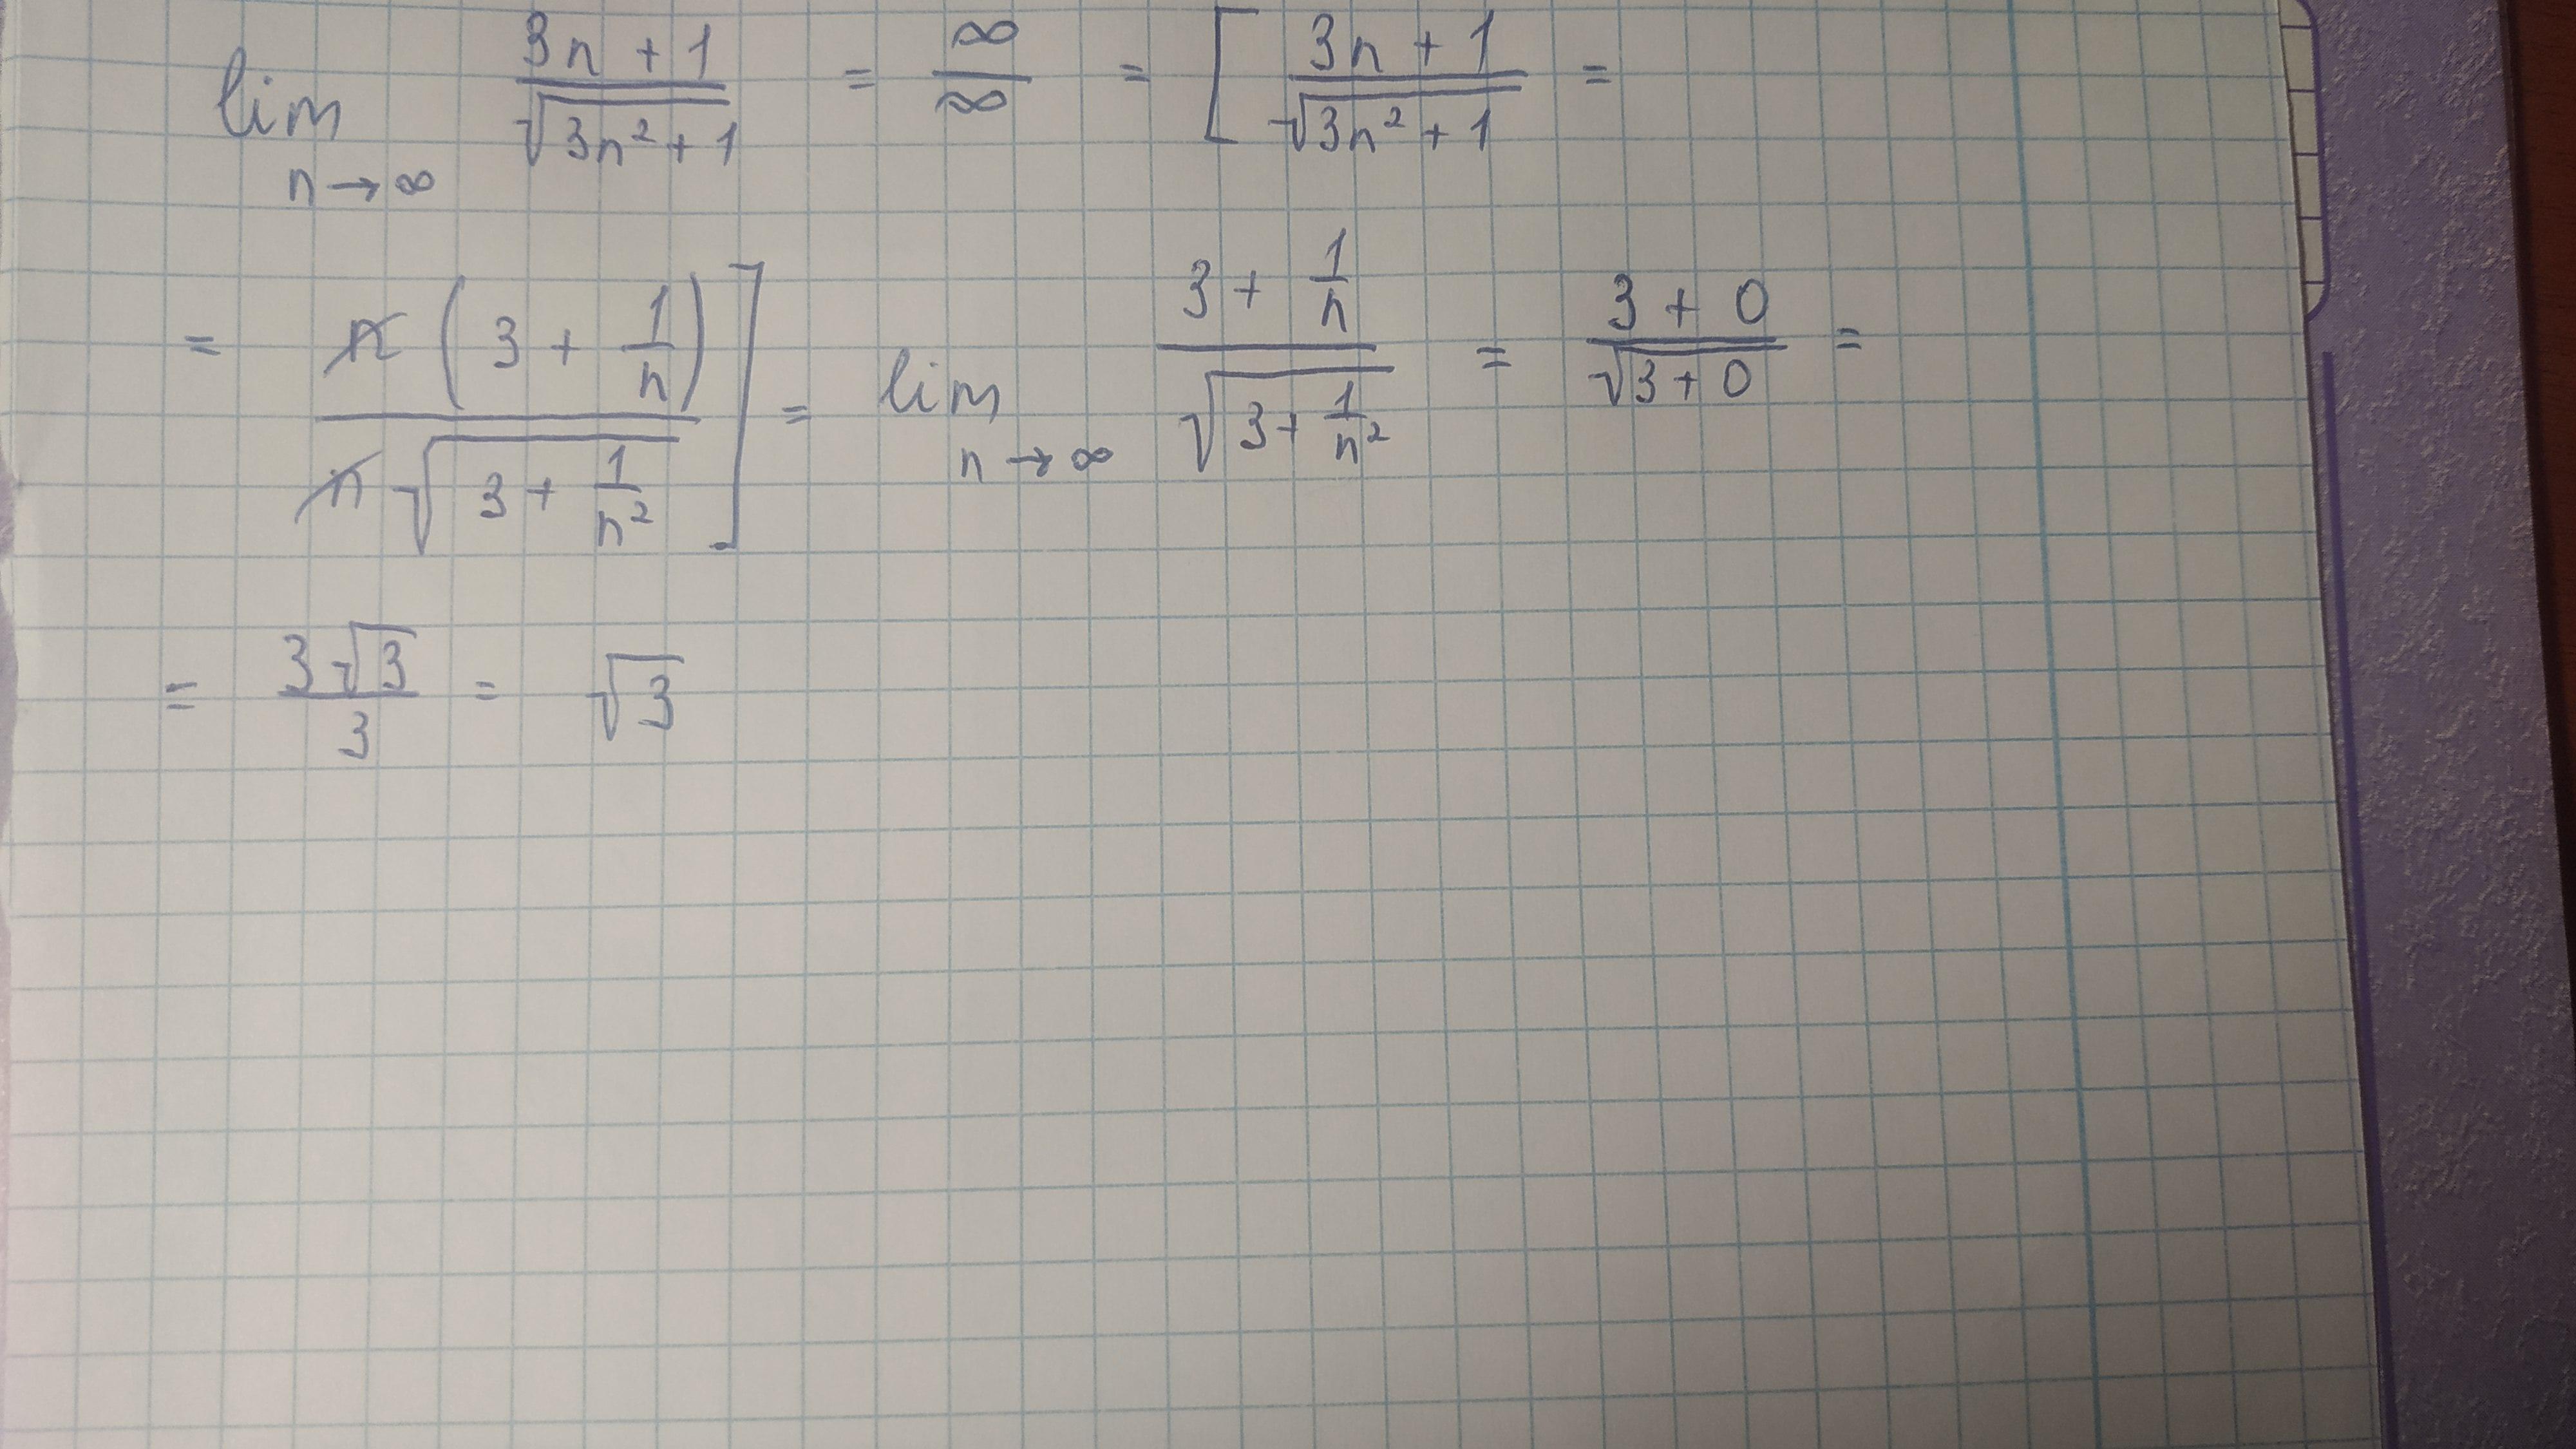 lim n→∞ (3n + 1)/(√(3n² + 1)) = ∞/∞ = [ (3n + 1)/(√(3n² + 1)) =
= n(3 + 1/n)/(n√(3 + 1/n²)) ] = lim n→∞ (3 + 1/n)/(√(3 + 1/n²)) = (3 + 0)/(√(3 + 0)) =
= 3√3/3 = √3